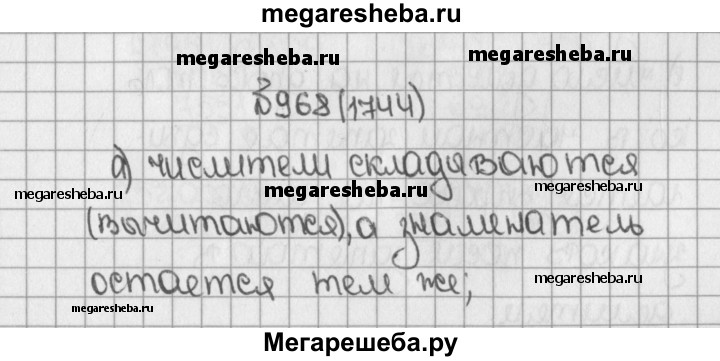 megaresheba.ru
megaresheba.ru megaresheba.ru
№968(1744)
а) числители складываются
megaresheba.ru megaresheba.ru megaresheba.ru
(вычитаются), а знаменатель
остается тем же;
megaresheba.ru megaresheba.ru
Мегарешеба.ру